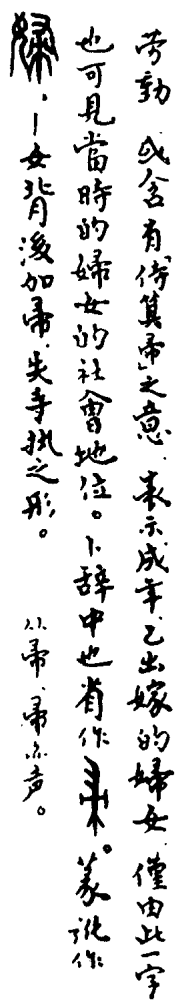 劳動，或含有「侍箕帚」之意．表示成年已出嫁的婦女．僅由此一字
也可見當時的婦女的社會地位。卜辞中也省作帚。篆訛作
婦，一女背後加帚．失手執之形。 从帚、帚亦声。